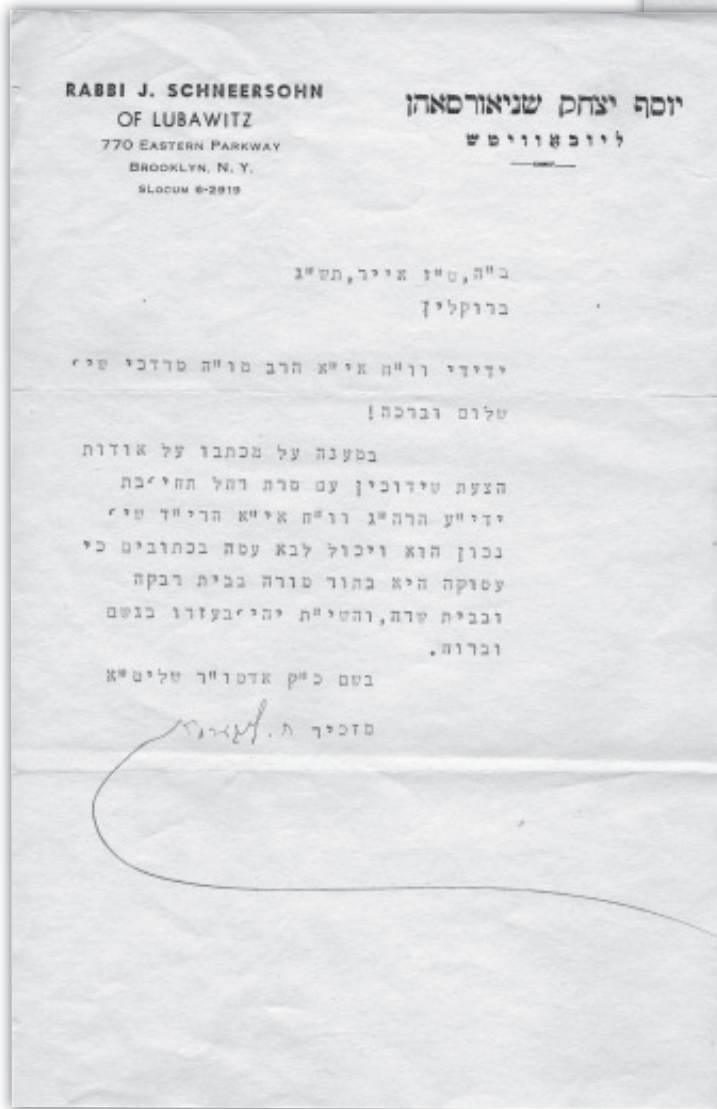 RABBI J. SCHNEERSOHN
OF LUBAWITZ
770 EASTERN PARKWAY
BROOKLYN, N. Y.
SLOCUM 6-2919
יוסף יצחק שניאורסאהן
ליובאוויטש
ב"ה, ט"ו אייר, תש"ג
ברוקלין
ידידי וו"ח אי"א הרב מו"ה מרדכי שי'
שלום וברכה!
במענה על מכתבו על אודות
הצעת שידוכין עם מרת רחל תחי' בת
ידי"ע הרה"ג וו"ח אי"א הרי"ד שי'
נכון הוא ויכול לבא עמה בכתובים כי
עסוקה היא בתור מורה בבית רבקה
ובבית שרה, והשי"ת יהי' בעזרו בגשם
וברוח.
בשם כ"ק אדמו"ר שליט"א
מזכיר ח.